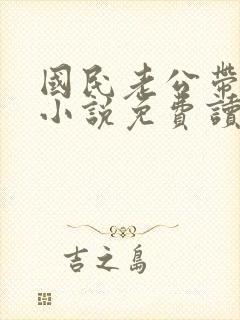 國民老公帶
小說免費讀
吉之島